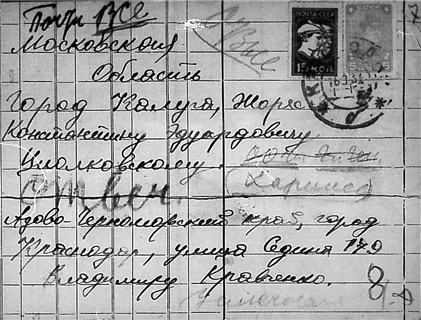 Почти все
Московская
Область
Город Калуга, Жорес
Константину Эдуардовичу
Циолковскому.
Ответ.
Азово-Черноморский край, город
Краснодар, улица Седина 179
Владимиру Кравченко.
8
ПОЧТА СССР
15 КОП